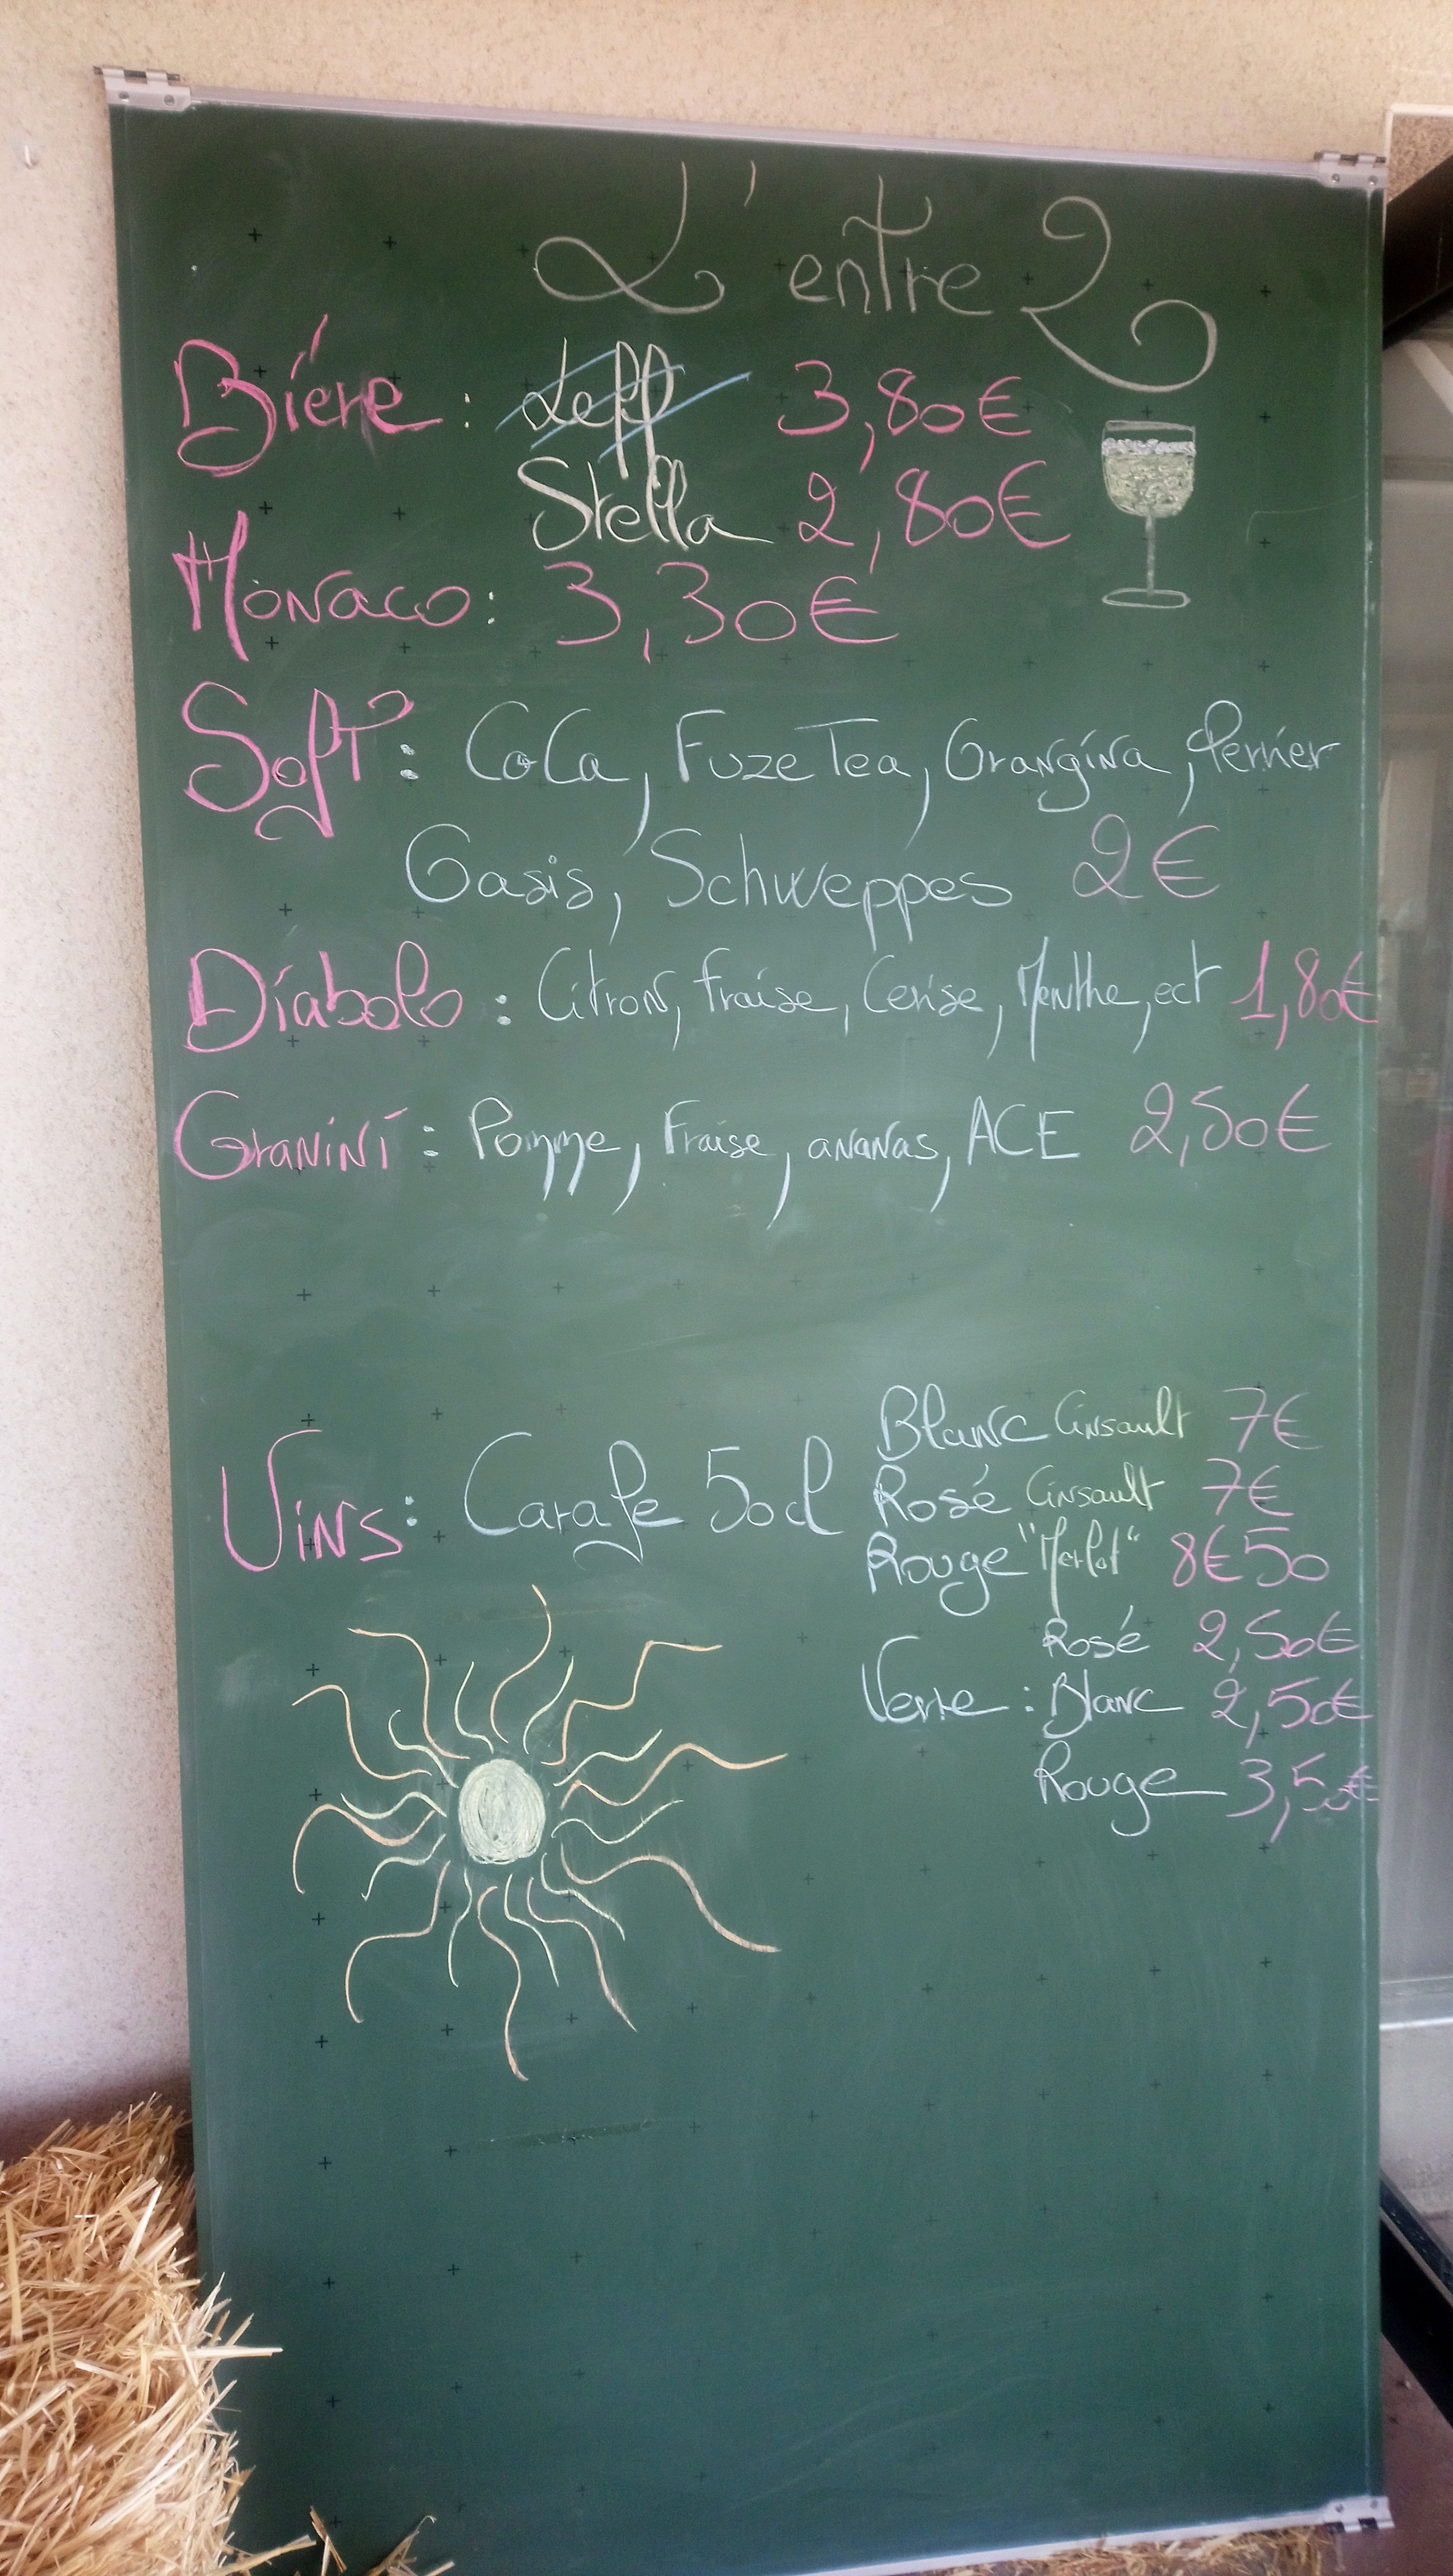 L'entre 2
Bière : Leff 3,80€
Stella 2,80€
Monaco : 3,30€
Soft : CoCa, Fuze Tea, Orangina, Perrier
Oasis, Schweppes 2€
Diabolo : Citron, fraise, Cerise, Menthe, ect 1,80€
Granini : Pomme, Fraise, ananas, ACE 2,50€
Blanc Cinsault 7€
Vins : Carafe 50cl Rosé Cinsault 7€
Rouge "Merlot" 8€50
Rosé 2,50€
Verre : Blanc 2,50€
Rouge 3,50€